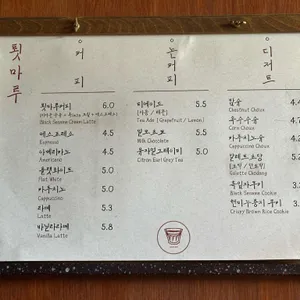 툇마루
커피
툇마루커피 6.0
Black Sesame Cream Latte
에스프레소 4.5
Espresso
아메리카노 4.5
Americano
플랫화이트 5.0
Flat White
카푸치노 5.0
Cappuccino
라떼 5.3
Latte
바닐라라떼 5.8
Vanilla Latte
논커피
티에이드 5.5
[자몽 / 레몬]
Tea Ade [Grapefruit / Lemon]
밀크초코 5.5
Milk Chocolate
Citron Earl Grey Tea 5.0
디저트
밤슈 4.
Chestnut Choux
옥수수슈 4.
Corn Choux
카푸치노슈 4.
Cappuccino Choux
갈레트쇼당 5.
Galette Chodang
흑임자쿠키 3.
Black Sesame Cookie
현미누룽지 쿠키 3.
Crispy Brown Rice Cookie